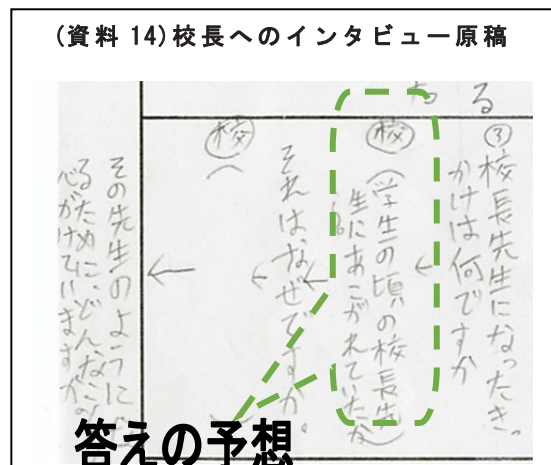 (資料 14)校長へのインタビュー原稿
る
③校長先生になったきっ
かけは何ですか
校(学生の頃の校長先
生にあこがれていたか
ら。)
それは、なぜですか。
校(
その先生のように
るために、どんなこ
心がけていますか。
答えの予想